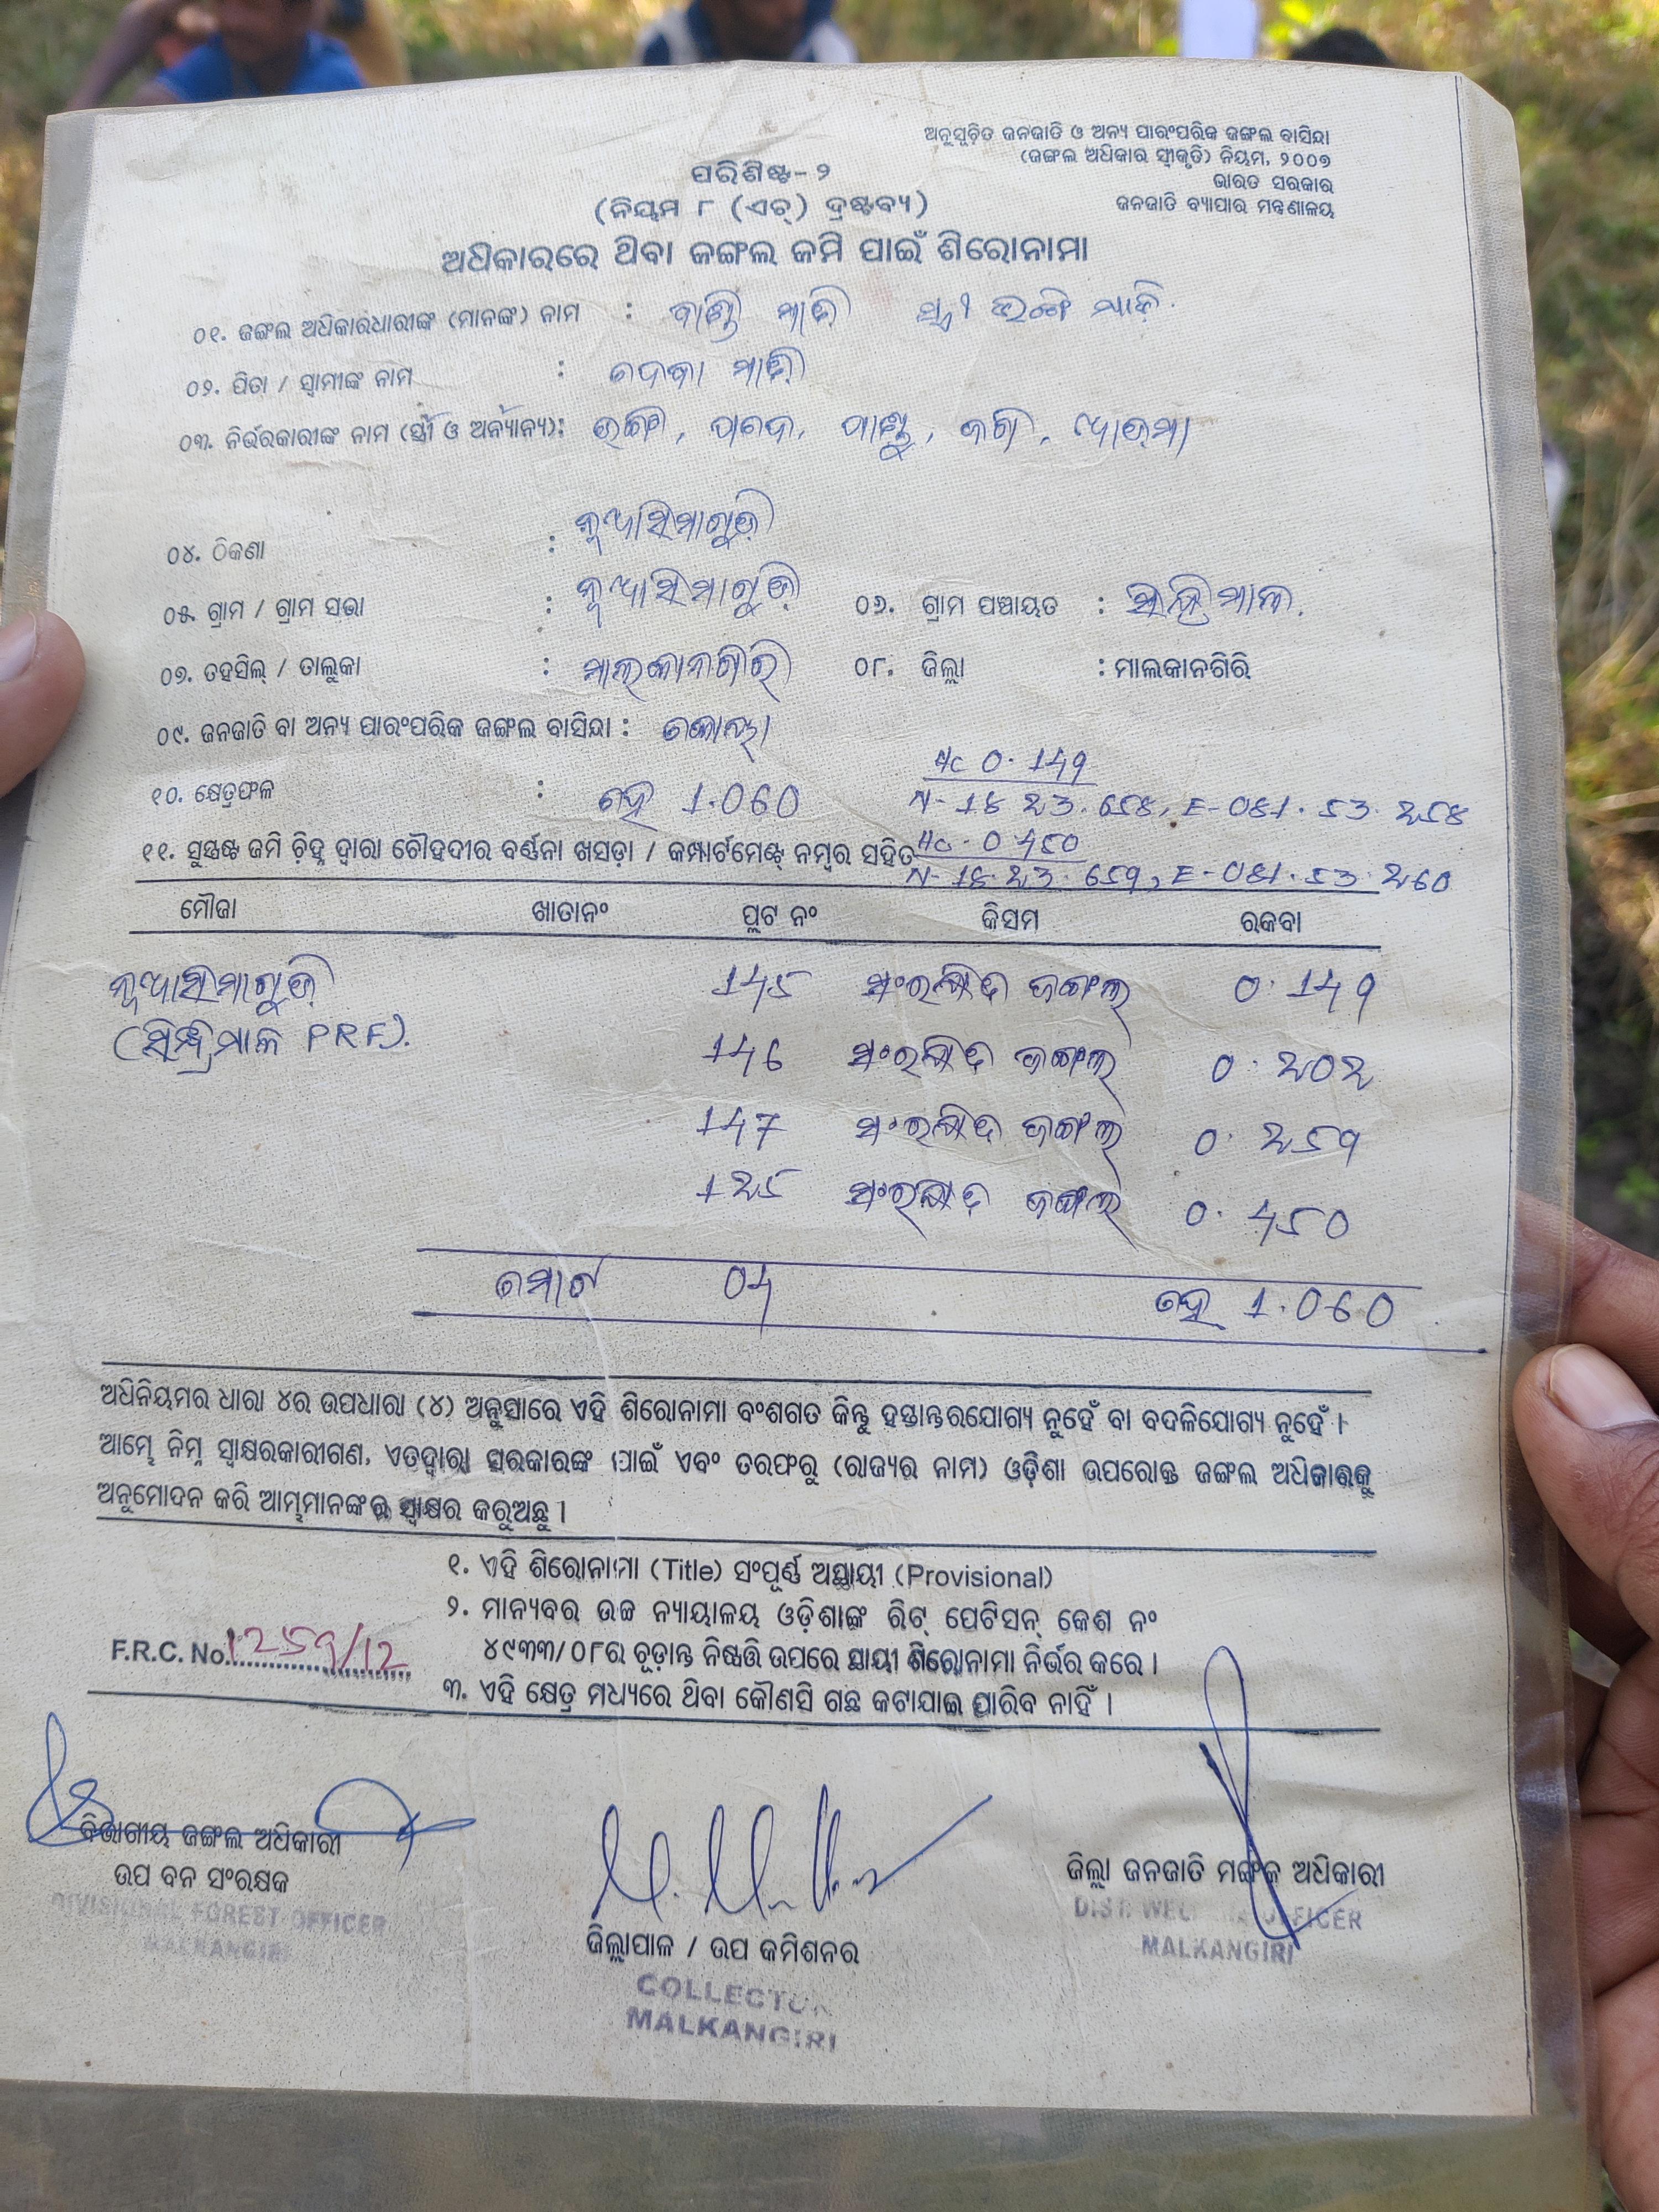 ଅନୁସୂଚିତ ଜନଜାତି ଓ ଅନ୍ୟ ପାରଂପରିକ ଜଙ୍ଗଲ ବାସିନ୍ଦା
(ଜଙ୍ଗଲ ଅଧିକାର ସ୍ୱୀକୃତି) ନିୟମ, ୨୦୦୭
ଭାରତ ସରକାର
ଜନଜାତି ବ୍ୟାପାର ମନ୍ତ୍ରଣାଳୟ
ପରିଶିଷ୍ଟ-୨
(ନିୟମ ୮ (ଏଚ୍) ଦ୍ରଷ୍ଟବ୍ୟ)
ଅଧିକାରରେ ଥିବା ଜଙ୍ଗଲ ଜମି ପାଇଁ ଶିରୋନାମା
୦୧. ଜଙ୍ଗଲ ଅଧିକାରଧାରୀଙ୍କ (ମାନଙ୍କ) ନାମ :
୦୨. ପିତା / ସ୍ୱାମୀଙ୍କ ନାମ :
୦୩. ନିର୍ଭରକାରୀଙ୍କ ନାମ (ସ୍ତ୍ରୀ ଓ ଅନ୍ୟାନ୍ୟ):
୦୪. ଠିକଣା : ନୂଆସିମାଗୁଡ଼ି
୦୫. ଗ୍ରାମ / ଗ୍ରାମ ସଭା : ନୂଆସିମାଗୁଡ଼ି ୦୬. ଗ୍ରାମ ପଞ୍ଚାୟତ :
୦୭. ତହସିଲ୍ / ତାଲୁକା : ମାଲକାନଗିରି ୦୮. ଜିଲ୍ଲା : ମାଲକାନଗିରି
୦୯. ଜନଜାତି ବା ଅନ୍ୟ ପାରଂପରିକ ଜଙ୍ଗଲ ବାସିନ୍ଦା : କୋୟା
Hc 0.149
୧୦. କ୍ଷେତ୍ରଫଳ : ହେ 1.060
N-18 23.658, E-081.53.258
Hc. 0.450
୧୧. ସୁସ୍ପଷ୍ଟ ଜମି ଚିହ୍ନ ଦ୍ୱାରା ଚୌହଦୀର ବର୍ଣ୍ଣନା ଖସଡ଼ା / କମ୍ପାର୍ଟମେଣ୍ଟ୍ ନମ୍ବର ସହିତ
N-18.23.659, E-081.53.260
ମୌଜା ଖାତାନଂ ପ୍ଲଟ ନଂ କିସମ ରକବା
ନୂଆସିମାଗୁଡ଼ି 145 ସଂରକ୍ଷିତ ଜଙ୍ଗଲ 0.149
(ସିନ୍ଧ୍ରିମାଳ PRF). 146 ସଂରକ୍ଷିତ ଜଙ୍ଗଲ 0.202
147 ସଂରକ୍ଷିତ ଜଙ୍ଗଲ 0.259
125 ସଂରକ୍ଷିତ ଜଙ୍ଗଲ 0.450
ମୋଟ 04 ହେ 1.060
ଅଧିନିୟମର ଧାରା ୪ର ଉପଧାରା (୪) ଅନୁସାରେ ଏହି ଶିରୋନାମା ବଂଶଗତ କିନ୍ତୁ ହସ୍ତାନ୍ତରଯୋଗ୍ୟ ନୁହେଁ ବା ବଦଳିଯୋଗ୍ୟ ନୁହେଁ ।
ଆମ୍ଭେ ନିମ୍ନ ସ୍ୱାକ୍ଷରକାରୀଗଣ, ଏତଦ୍ୱାରା ସରକାରଙ୍କ ପାଇଁ ଏବଂ ତରଫରୁ (ରାଜ୍ୟର ନାମ) ଓଡ଼ିଶା ଉପରୋକ୍ତ ଜଙ୍ଗଲ ଅଧିକାରକୁ
ଅନୁମୋଦନ କରି ଆମ୍ଭମାନଙ୍କର ସ୍ୱାକ୍ଷର କରୁଅଛୁ ।
୧. ଏହି ଶିରୋନାମା (Title) ସଂପୂର୍ଣ୍ଣ ଅସ୍ଥାୟୀ (Provisional)
୨. ମାନ୍ୟବର ଉଚ୍ଚ ନ୍ୟାୟାଳୟ ଓଡ଼ିଶାଙ୍କ ରିଟ୍ ପେଟିସନ୍ କେଶ ନଂ
୪୯୩୩/୦୮ର ଚୂଡ଼ାନ୍ତ ନିଷ୍ପତ୍ତି ଉପରେ ସ୍ଥାୟୀ ଶିରୋନାମା ନିର୍ଭର କରେ ।
F.R.C. No. 1259/12
୩. ଏହି କ୍ଷେତ୍ର ମଧ୍ୟରେ ଥିବା କୌଣସି ଗଛ କଟାଯାଇ ପାରିବ ନାହିଁ ।
ବିଭାଗୀୟ ଜଙ୍ଗଲ ଅଧିକାରୀ
ଉପ ବନ ସଂରକ୍ଷକ
DIVISIONAL FOREST OFFICER
MALKANGIRI
ଜିଲ୍ଲାପାଳ / ଉପ କମିଶନର
COLLECTOR
MALKANGIRI
ଜିଲ୍ଲା ଜନଜାତି ମଙ୍ଗଳ ଅଧିକାରୀ
DIST. WELFARE OFFICER
MALKANGIRI